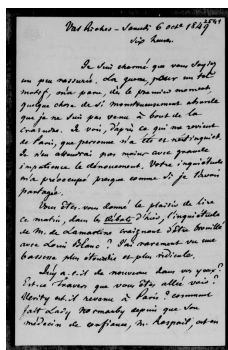 Val Richer - Samedi 6 oct 1849
2541
Six heures.
Je suis charmé que vous soyez
un peu rassurée. La guerre, pour un tel
motif, m'a paru, dès le premier moment,
quelque chose de si monstrueusement absurde
que je ne suis pas venu à bout de la
craindre. Je vois, d'après ce qui me revient
de Paris, que personne n'a été
Je n'en attendrai pas moins avec grande
impatience le dénouement. Votre inquiétude
m'a préoccupé presque comme si je l'avais
partagée.
Vous êtes vous donné le plaisir de lire
ce matin, dans les Débats d'hier, l'inquiétude
de M. de Lamartine craignant d'être brouillé
avec Louis Blanc ? J'ai rarement vu une
bassesse plus étourdie et plus ridicule.
Qu'y a-t-il de nouveau dans vos yeux ?
Est-ce Travers que vous êtes allé voir ?
est-il revenu à Paris ? Comment
fait Lady Normanby depuis que son
médecin de confiance, M. Raspail, est en